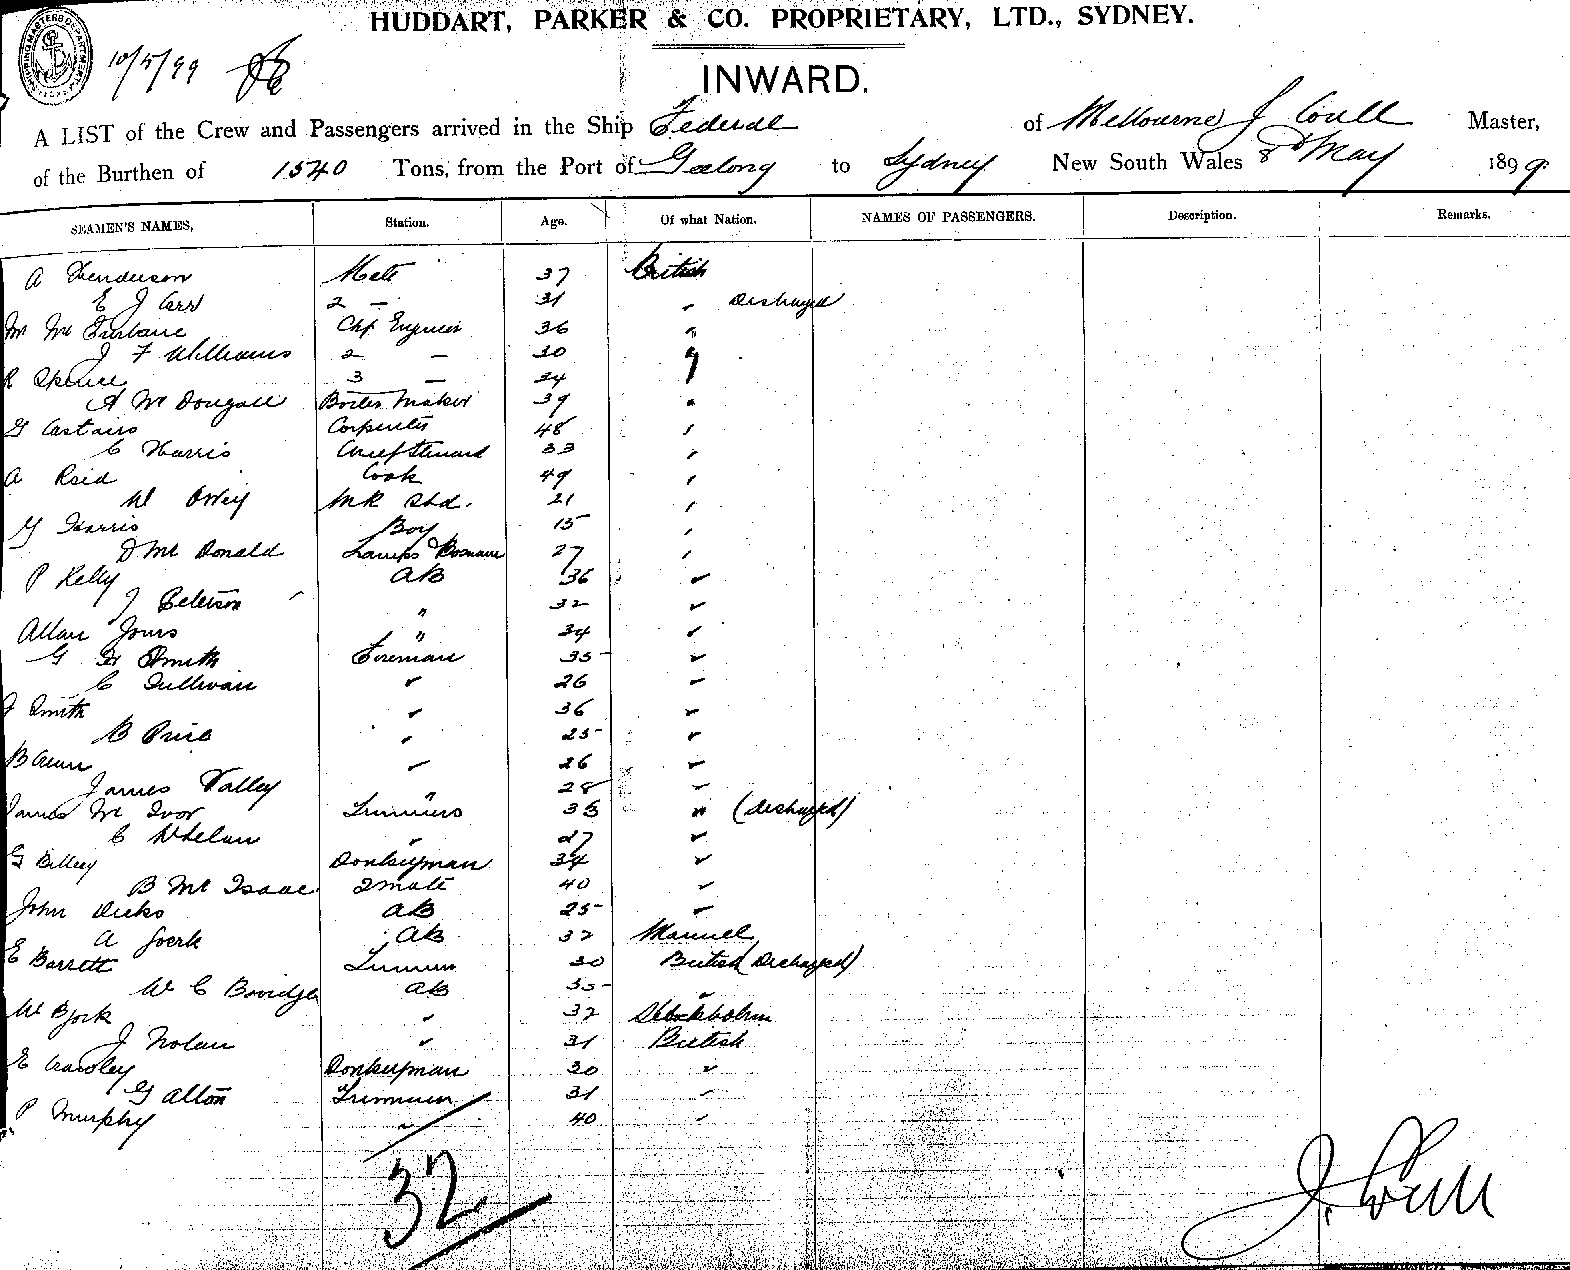 HUDDART, PARKER & CO. PROPRIETARY, LTD., SYDNEY.
10/5/99
INWARD.
A LIST of the Crew and Passengers arrived in the Ship Federal of Melbourne J Coull Master,
of the Burthen of 1540 Tons, from the Port of Geelong to Sydney New South Wales 8th May 1899.
SEAMEN'S NAMES, Station. Age. Of what Nation. NAMES OF PASSENGERS. Description. Remarks.
A Henderson Mate 37 British
E J Carr 2 — 31 " Discharged
Chf Engineer 36 "
J F Williams 2 — 30 "
R Spence 3 — 24
A McDougall Boiler Maker 39 "
G Carpenter 48 "
C Harris Chief Steward 33 "
A Reid Cook 49 "
W MR Std. 21 "
G Harris Boy 15 "
D McDonald Lamps 27 "
P Kelly AB 36 "
J Peterson " 32 "
Allan Jones " 34 "
G H Smith Fireman 35 "
C Sullivan " 26 "
J Smith " 36 "
B Price " 25 "
B " 26 "
James Valley " 28 "
James McIvor Trimmers 35 " (discharged)
C Whelan " 27 "
G Donkeyman 34 "
B McIsaac 2 mate 40 "
John Dicks AB 25 "
A AB 32
E Barrett Trimmer 30 British (Discharged)
W C AB 35 "
W Bjork " 32 Stockholm
J Nolan " 31 British
E Crawley Donkeyman 30 "
G Alton Trimmer 31 "
P Murphy " 40 "
32
J. Coull